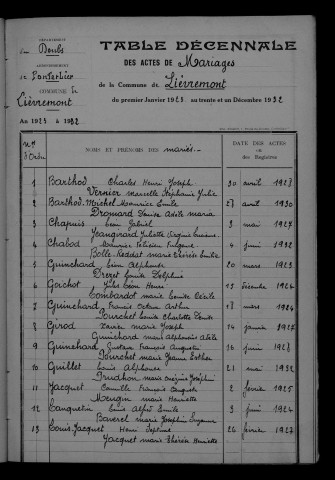 DÉPARTEMENT
du Doubs
ARRONDISSEMENT
de Pontarlier
COMMUNE de
Lièvremont
An 1923 à 1932
TABLE DÉCENNALE
DES ACTES de Mariages
de la Commune de Lièvremont
du premier Janvier 1923 au trente et un Décembre 1932
Nos d'Ordre
NOMS ET PRÉNOMS DES mariés
DATE DES ACTES et des Registres
1 Barthod Charles Henri Joseph 30 avril 1928
Vernier Marcelle Stéphanie Julie
2 Barthod-Michel Maurice Emile 28 avril 1930
Drouard Louise Adèle Maria
3 Chapuis Léon Gabriel 3 mai 1927
Jeangirard Juliette
4 Chabod Fulgence 4 juin 1932
Bolle Reddat Marie Thérèse Emilie
5 Guinchard Léon Alphonse 20 mars 1923
Drezet Louise Delphine
6 Gorchot Jules Léon Henri 13 décembre 1924
Lombardot Marie Cécile
7 Guinchard Francis Octave Arthur 18 mars 1924
Pourchet Louise Charlotte
8 Girod Xavier Marie Joseph 14 janvier 1927
Guinchard Marie Alphonsine Adèle
9 Guinchard Gustave François Auguste 16 juin 1928
Pourchet Marie Jeanne Esther
10 Guillet Louis Alphonse 21 mai 1932
Prudhon Marie Joséphine
11 Jacquet Camille François 2 février 1925
Mougin Marie Henriette
12 Tanquetin Louis Alfred Emile 3 juin 1924
Baverel Marie Joséphine Suzanne
13 Louis-Jacquet Henri 26 février 1927
Jacquet Marie Thérèse Henriette